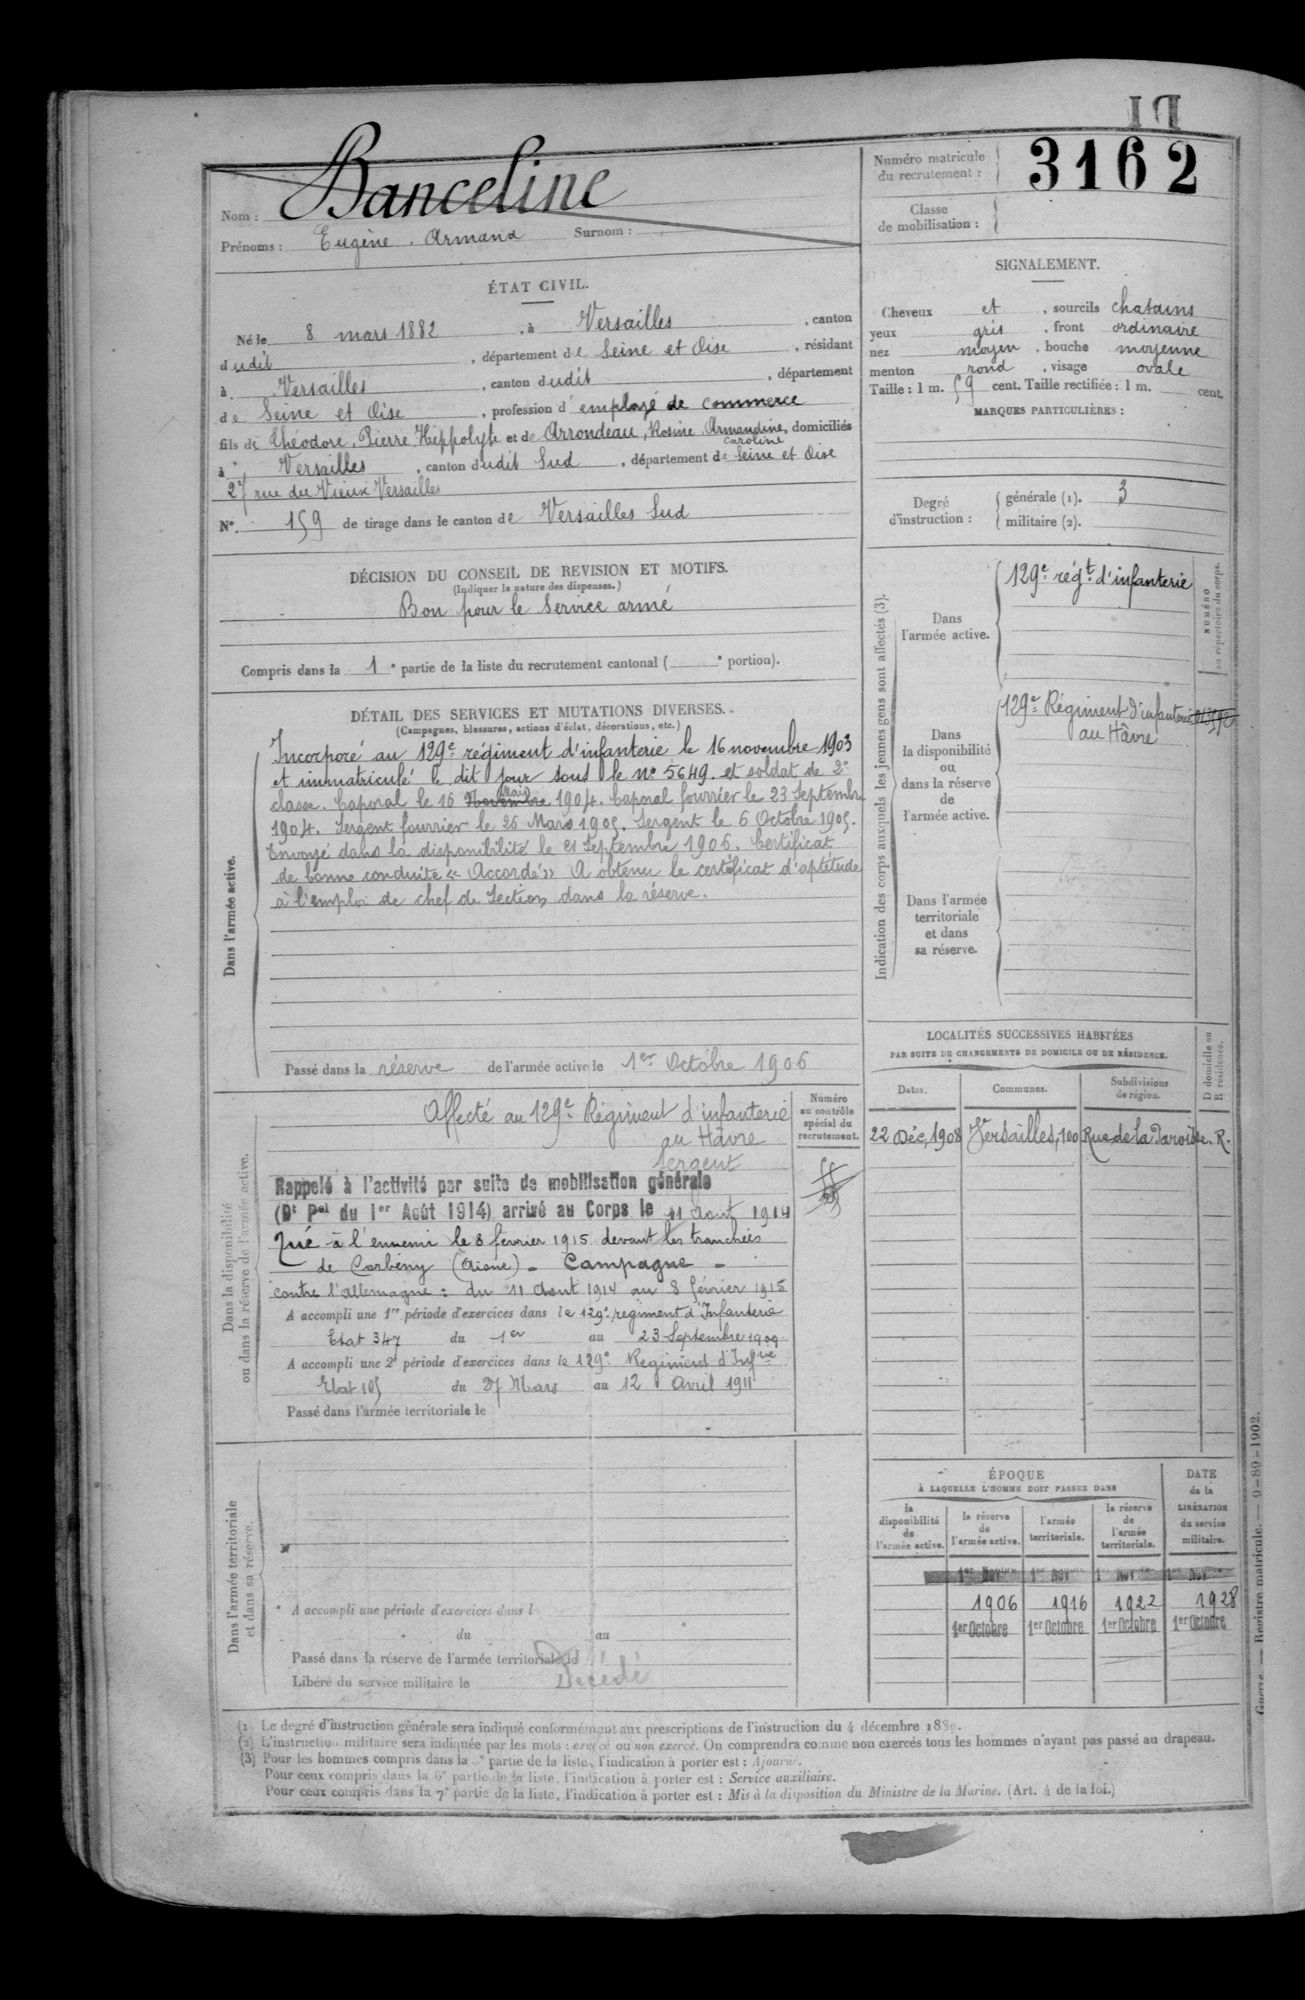 Numéro matricule
du recrutement : 3162
Classe
de mobilisation :
Nom : Banceline
Prénoms : Eugène, Armand Surnom :
ÉTAT CIVIL.
Né le 8 mars 1882, à Versailles, canton
dudit, département de Seine et Oise, résidant
à Versailles, canton dudit, département
de Seine et Oise, profession d'employé de commerce
fils de Théodore, Pierre Hippolyte et de Arrondeau, Rosine Armandine, domiciliés
Caroline
à Versailles, canton dudit Sud, département de Seine et Oise
27 rue du Vieux Versailles
N° 159 de tirage dans le canton de Versailles Sud
DÉCISION DU CONSEIL DE REVISION ET MOTIFS.
(Indiquer la nature des dispenses.)
Bon pour le service armé
Compris dans la 1e partie de la liste du recrutement cantonal ( e portion).
DÉTAIL DES SERVICES ET MUTATIONS DIVERSES.
(Campagnes, blessures, actions d'éclat, décorations, etc.)
Dans l'armée active.
Incorporé au 129e régiment d'infanterie le 16 novembre 1903
et immatriculé le dit jour sous le n° 5649. et soldat de 2e
classe. Caporal le 16 Novembre Mai 1904. Caporal fourrier le 23 Septembre
1904. Sergent fourrier le 26 Mars 1905. Sergent le 6 Octobre 1905.
Envoyé dans la disponibilité le 21 Septembre 1906. Certificat
de bonne conduite « Accordé » A obtenu le certificat d'aptitude
à l'emploi de chef de Section dans la réserve.
Passé dans la réserve de l'armée active le 1er Octobre 1906
Dans la disponibilité
ou dans la réserve de l'armée active.
Numéro
au contrôle
spécial du
recrutement.
Affecté au 129e Régiment d'infanterie
au Hâvre
Sergent
Rappelé à l'activité par suite de mobilisation générale
(Dt Pal du 1er Août 1914) arrivé au Corps le 11 aout 1914
Tué à l'ennemi le 8 février 1915 devant les tranchées
de Corbény (Aisne) - Campagne -
contre l'allemagne : du 11 aout 1914 au 8 février 1915
A accompli une 1re période d'exercices dans le 129e regiment d'Infanterie
Etat 347 du 1er au 23 Septembre 1909
A accompli une 2e période d'exercices dans le 129e Regiment d'Infrie
Etat 105 du 27 Mars au 12 Avril 1911
Passé dans l'armée territoriale le
Dans l'armée territoriale
et dans sa réserve.
A accompli une période d'exercices dans l
du au
Passé dans la réserve de l'armée territoriale le
Libéré du service militaire le Décédé
SIGNALEMENT.
Cheveux et, sourcils chatains
yeux gris, front ordinaire
nez moyen, bouche moyenne
menton rond, visage ovale
Taille : 1 m. 59 cent. Taille rectifiée : 1 m. cent.
MARQUES PARTICULIÈRES :
Degré
d'instruction :
générale (1). 3
militaire (2).
Indication des corps auxquels les jeunes gens sont affectés (3).
NUMÉRO
au répertoire du corps.
Dans
l'armée active.
129e régt d'infanterie
Dans
la disponibilité
ou
dans la réserve
de
l'armée active.
129e Régiment d'infanterie
au Hâvre
Dans l'armée
territoriale
et dans
sa réserve.
LOCALITÉS SUCCESSIVES HABITÉES
PAR SUITE DE CHANGEMENTS DE DOMICILE OU DE RÉSIDENCE.
D domicile ou
R résidence.
Dates. Communes. Subdivisions
de région.
22 Déc. 1908 Versailles, 100 Rue de la Paroisse. R.
ÉPOQUE
À LAQUELLE L'HOMME DOIT PASSER DANS
DATE
de la
LIBÉRATION
du service
militaire.
la
disponibilité
de
l'armée active.
la réserve
de
l'armée active.
l'armée
territoriale.
la réserve
de
l'armée
territoriale.
1er Nov 1er Nov 1er Nov 1er Nov
1906 1916 1922 1928
1er Octobre 1er Octobre 1er Octobre 1er Octobre
(1) Le degré d'instruction générale sera indiqué conformément aux prescriptions de l'instruction du 4 décembre 1889.
(2) L'instruction militaire sera indiquée par les mots : exercé ou non exercé. On comprendra comme non exercés tous les hommes n'ayant pas passé au drapeau.
(3) Pour les hommes compris dans la e partie de la liste, l'indication à porter est : Ajourné.
Pour ceux compris dans la 6e partie de la liste, l'indication à porter est : Service auxiliaire.
Pour ceux compris dans la 7e partie de la liste, l'indication à porter est : Mis à la disposition du Ministre de la Marine. (Art. 4 de la loi.)
Guerre. — Registre matricule. — 9-89-1902.